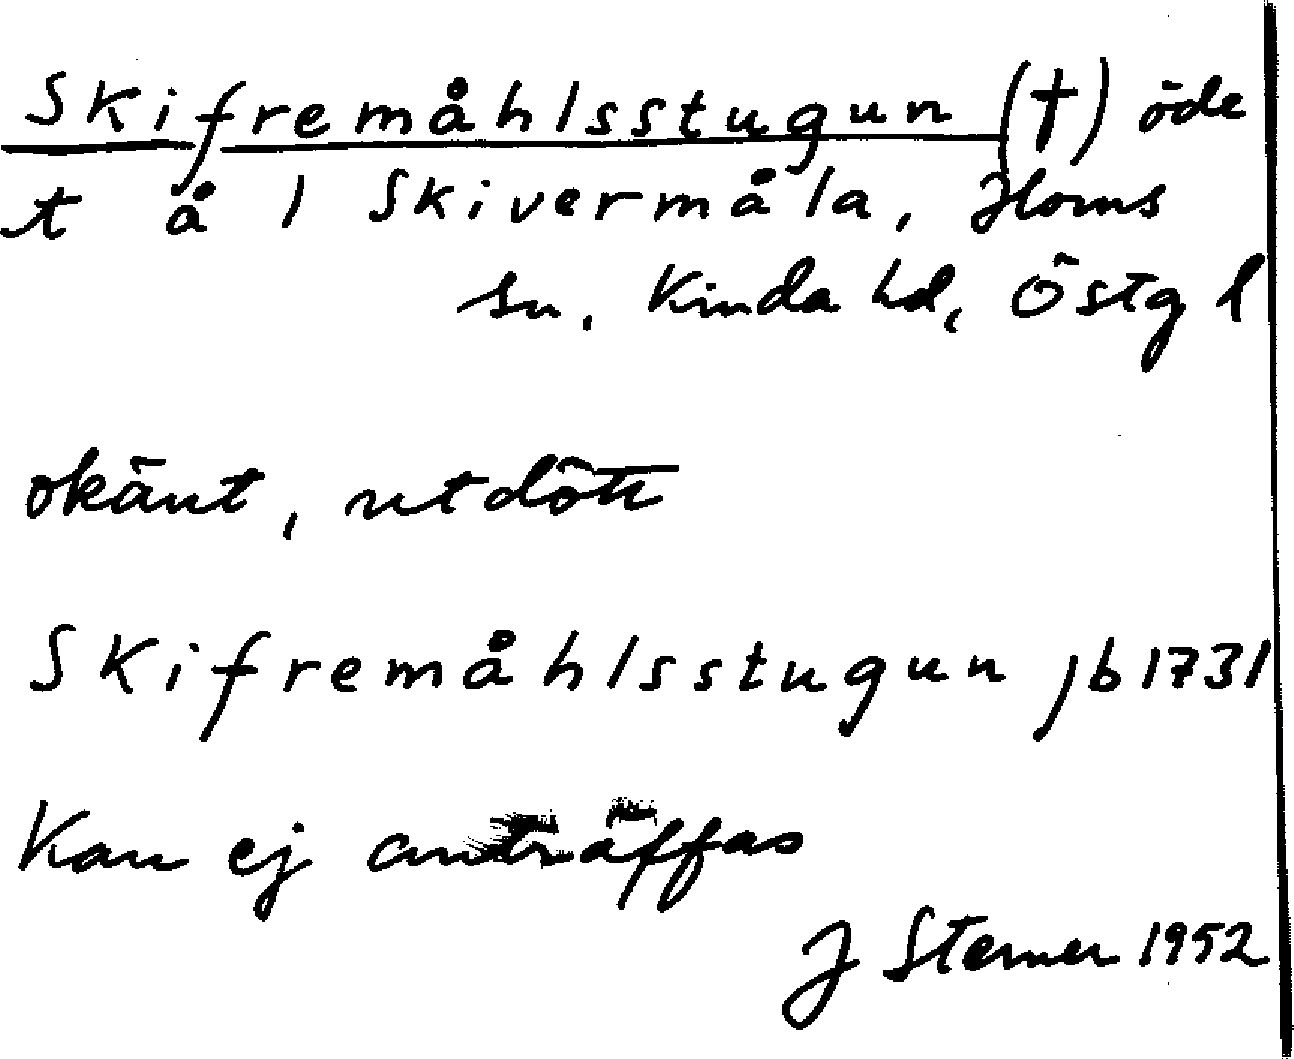 Skifremåhlsstugun (†) öde
t å 1 Skivermåla, Horns
sn. Kinda hd, Östg l
okänt, utdött
Skifremåhlsstugun jb 1731
Kan ej anträffas
J Sterner 1952